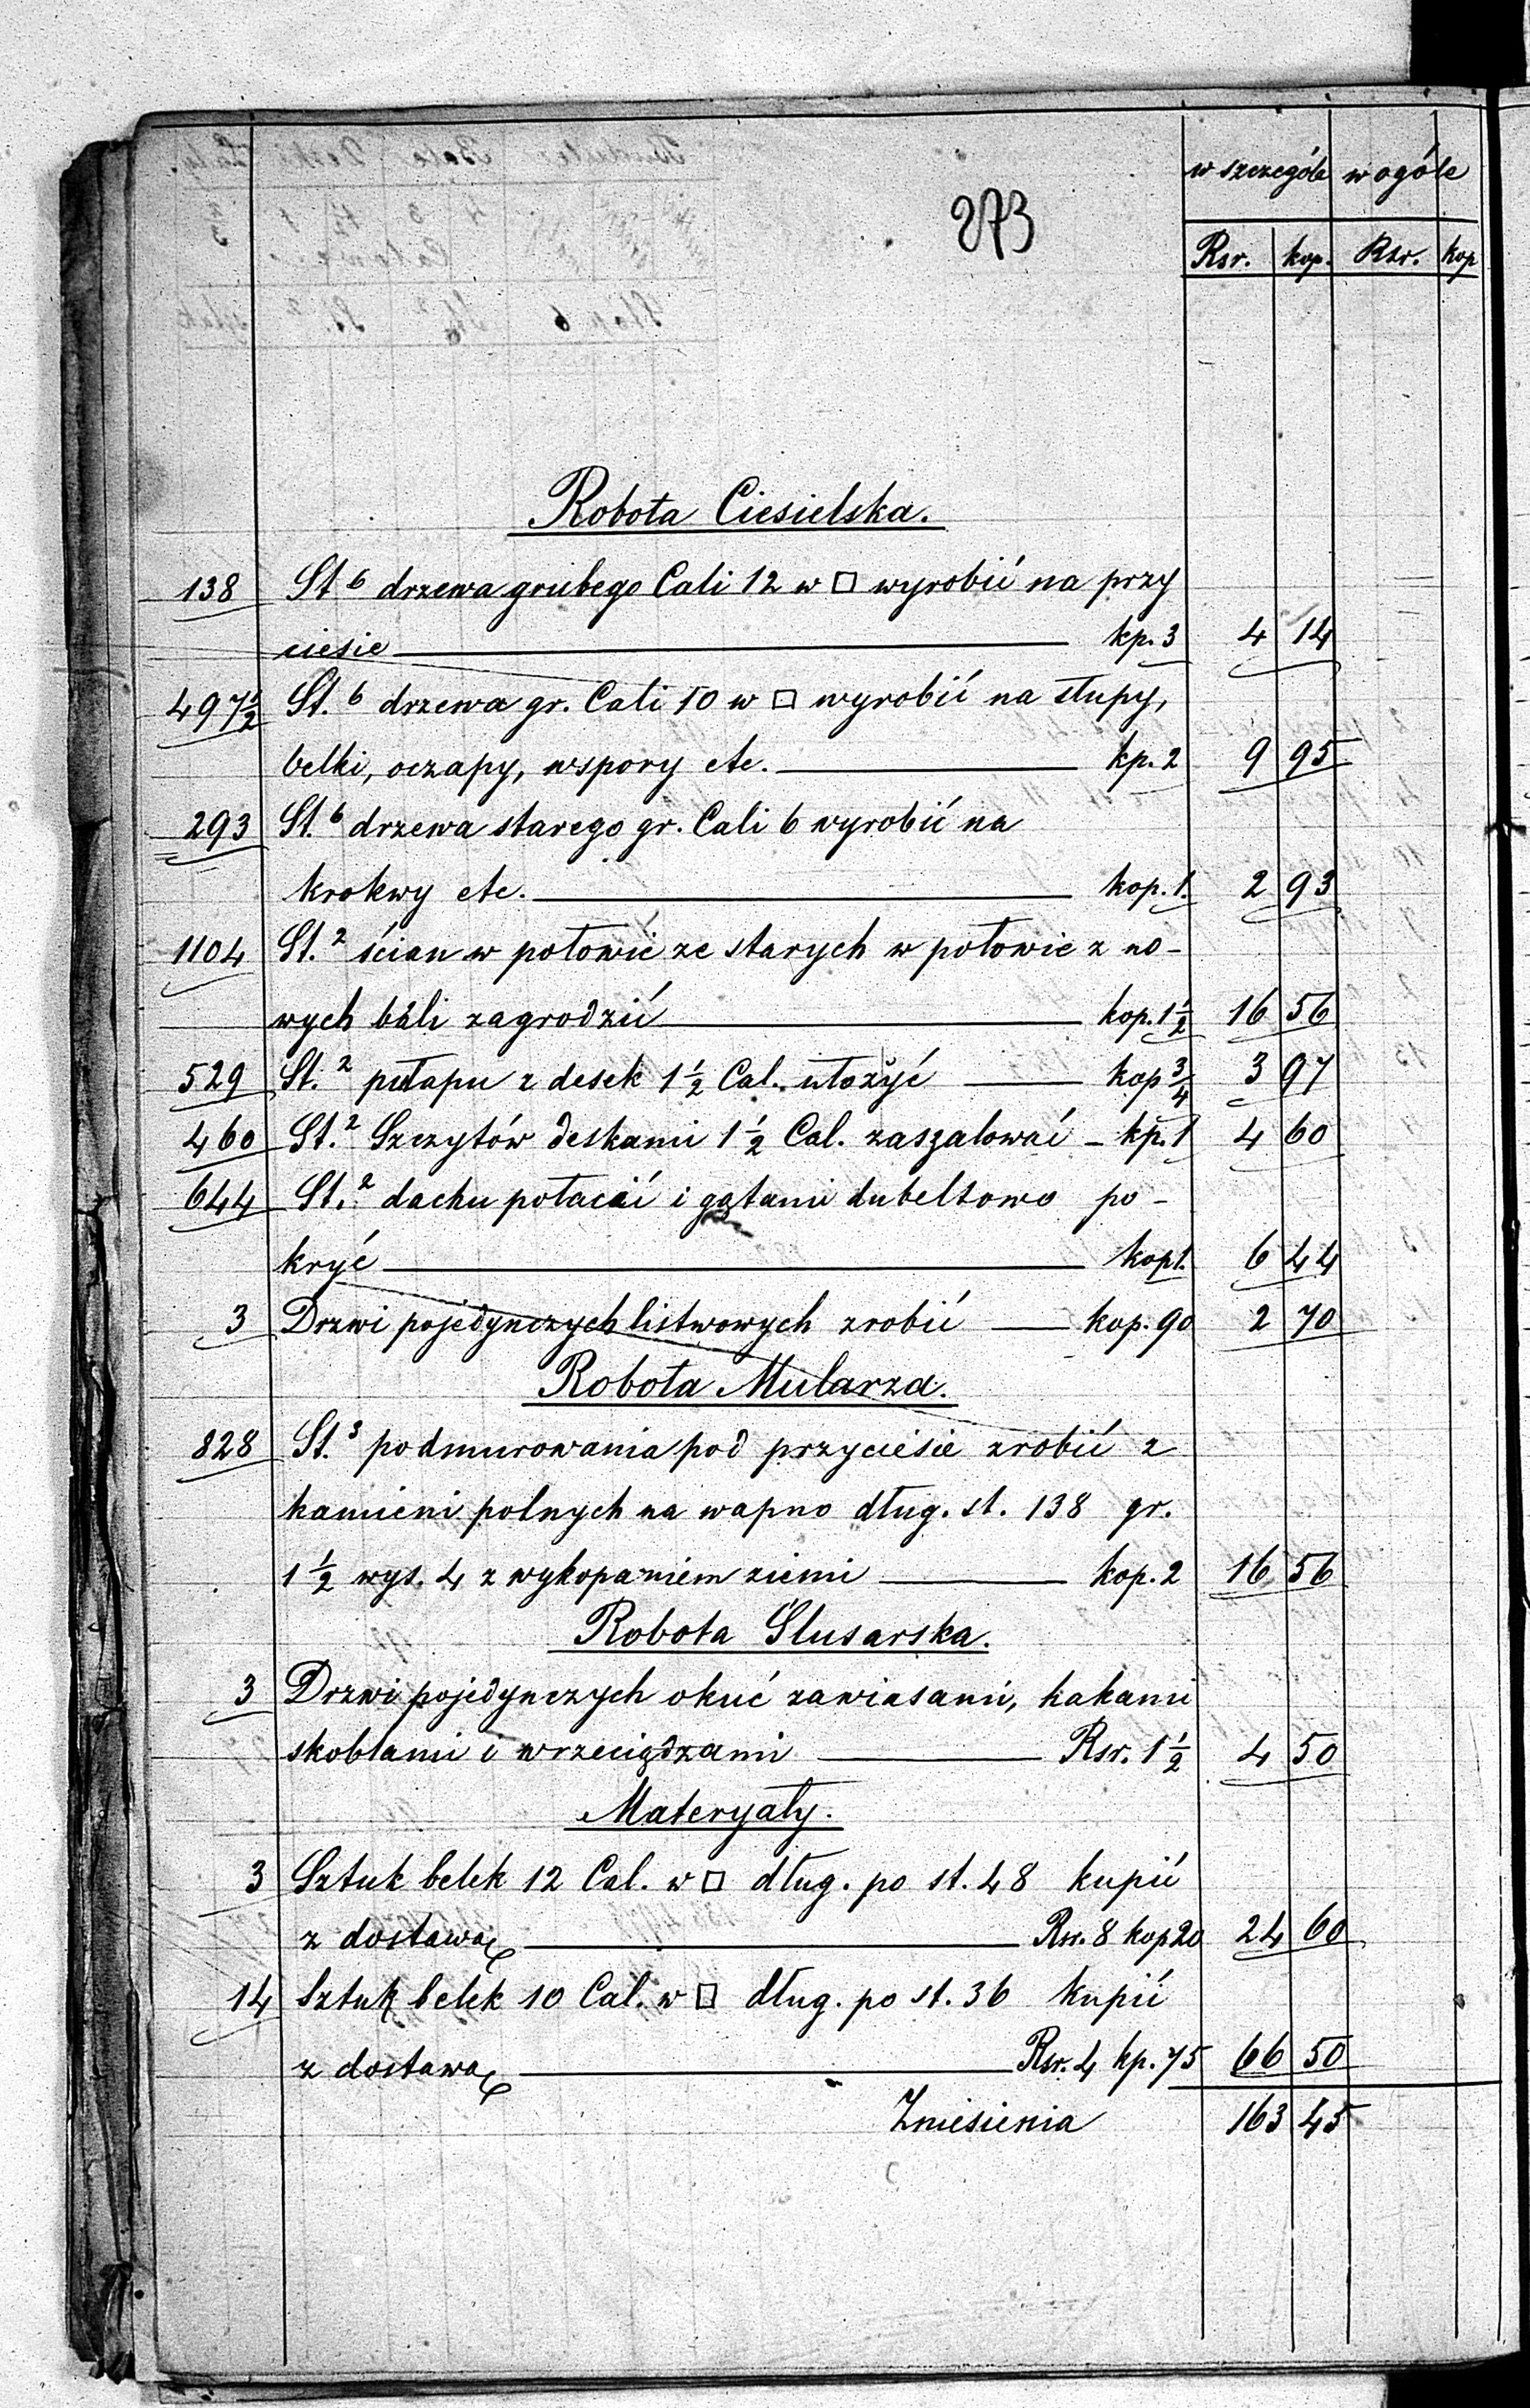 w szczególe w ogóle
273
Rsr. kop. Rsr. kop
Robota Ciesielska.
138 St 6 drzewa grubego Cali 12 w □ wyrobić na przy
ciesie kp. 3 4 14
497½ St. 6 drzewa gr. Cali 10 w □ wyrobić na słupy,
belki, oczapy, wspory etc. kp. 2 9 95
293 St. 6 drzewa starego gr. Cali 6 wyrobić na
krokwy etc. kop. 1. 2 93
1104 St.² ścian w połowie ze starych w połowie z no-
wych bali zagrodzić kop. 1½ 16 56
529 St.² pułapu z desek 1½ Cal. ułożyć kop ¾ 3 97
460 St.² Szczytów deskami 1½ Cal. zaszalować - kp. 1 4 60
644 St.² dachu połacić i gątami dubeltowo po-
kryć kop 1. 6 44
3 Drzwi pojedynczych listwowych zrobić kop. 90 2 70
Robota Mularza.
828 St.³ podmurowania pod przyciesie zrobić z
kamieni polnych na wapno dług. st. 138 gr.
1½ wys. 4 z wykopaniem ziemi kop. 2 16 56
Robota Ślusarska.
3 Drzwi pojedynczych okuć zawiasami, hakami
skoblami i wrzeciądzami Rsr. 1½ 4 50
Materyały.
3 Sztuk belek 12 Cal. w □ dług. po st. 48 kupić
z dostawą Rsr. 8 kop 20 24 60
14 Sztuk belek 10 Cal. w □ dług. po st. 36 kupić
z dostawą Rsr. 4 kp. 75 66 50
Zniesienia 163 45